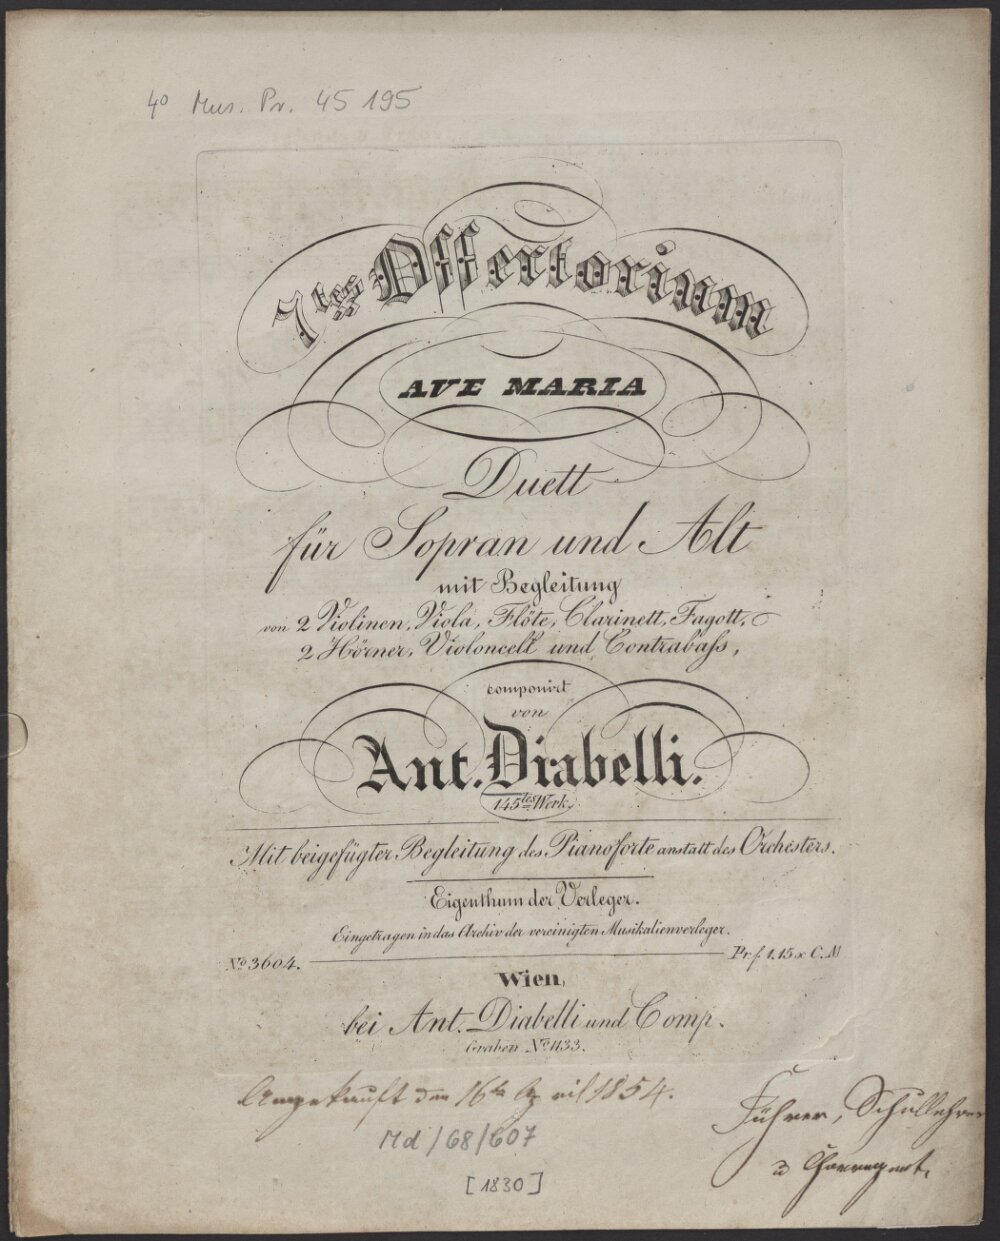 4° Mus. Pr. 45 195
7tes Offertorium
AVE MARIA
Duett
für Sopran und Alt
mit Begleitung
von 2 Violinen, Viola, Flöte, Clarinett, Fagott,
2 Hörner, Violoncell und Contrabaſs,
componirt
von
Ant. Diabelli.
145tes Werk.
Mit beigefügter Begleitung des Pianoforte anstatt des Orchesters.
Eigenthum der Verleger.
Eingetragen in das Archiv der vereinigten Musikalienverleger.
No 3604.
Pr. f. 1.15 x C.M
Wien,
bei Ant. Diabelli und Comp.
Graben No 1133.
Angekauft den 16ten April 1854.
Führer, Schullehrer
u Chorregent.
Md/68/607
[1830]